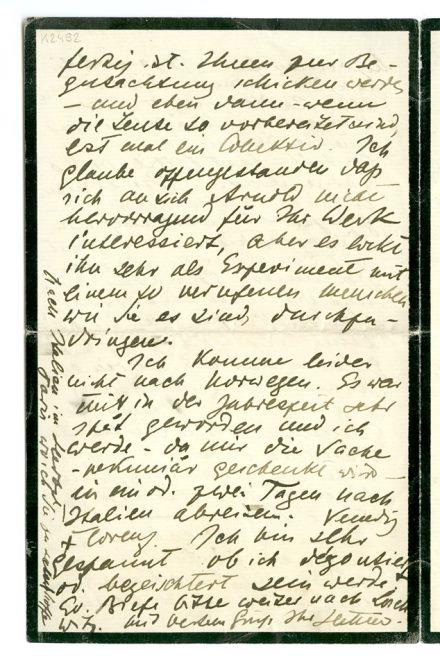 K2492
fertig ist. Ihnen zur Be-
gutachtung schicken werde
– und eben dann – wenn
die Leute so vorbereitet sind,
erst mal ein Kollektiv. Ich
glaube offengestanden daß
sich an sich Arnold nicht
hervorragend für Ihr Werk
interessiert, aber es lockt
ihn sehr als Experiment mit
einem so verrufenen Menschen
wie Sie es sind, durchzu-
dringen.
Ich komme leider
nicht nach Norwegen. Es war
mir in der Jahreszeit sehr
spät geworden und ich
werde – da mir die Sache
pekuniär geschenkt wird –
in ein od. zwei Tagen nach
Italien abreisen. Venedig
+ Florenz. Ich bin sehr
gespannt ob ich degoutiert
od. begeistert sein werde.
Ev. Briefe bitte weiter nach
witz. mit bestem Gruß Ihr
Nach Italien im
Paris